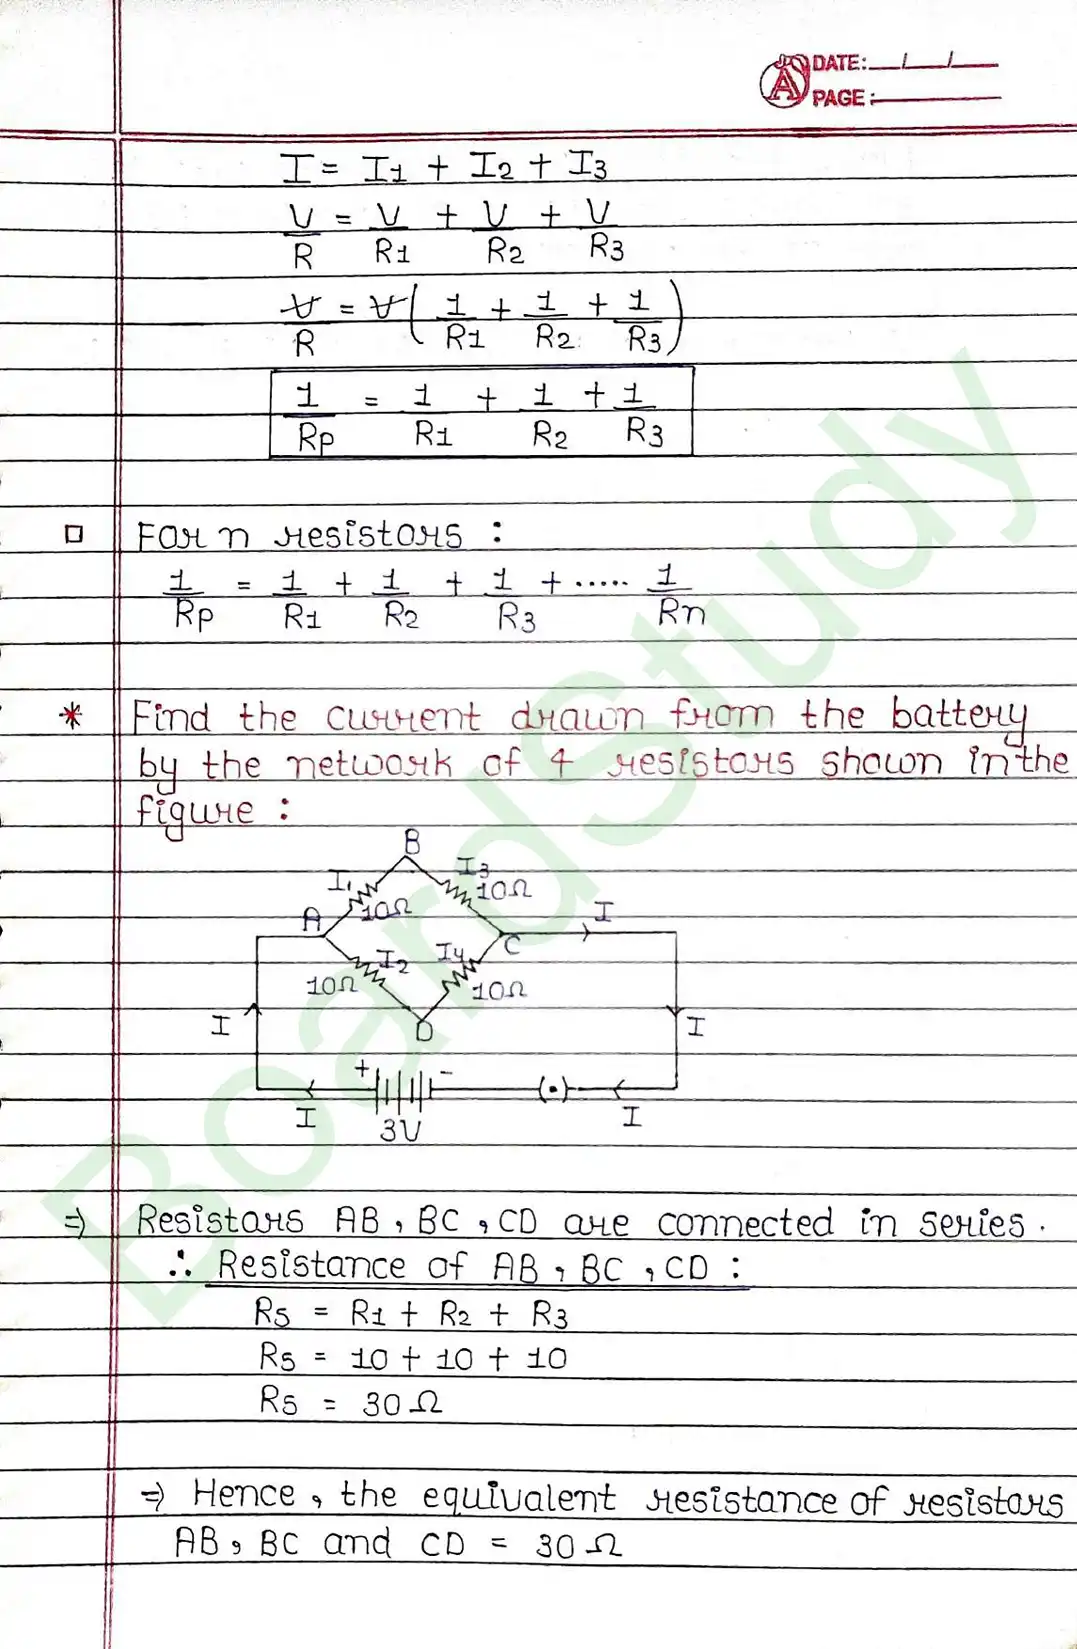 DATE: __/__/__
PAGE:
I = I1 + I2 + I3
V/R = V/R1 + V/R2 + V/R3
V/R = V(1/R1 + 1/R2 + 1/R3)
1/Rp = 1/R1 + 1/R2 + 1/R3
□ For n resistors :
1/Rp = 1/R1 + 1/R2 + 1/R3 + ..... 1/Rn
* Find the current drawn from the battery
by the network of 4 resistors shown in the
figure :
B
I1 I3
10Ω 10Ω
A C I
I2 I4
10Ω 10Ω
D
I I
+ -
I 3V (•) I
⇒ Resistors AB, BC, CD are connected in series.
∴ Resistance of AB, BC, CD :
Rs = R1 + R2 + R3
Rs = 10 + 10 + 10
Rs = 30Ω
⇒ Hence, the equivalent resistance of resistors
AB, BC and CD = 30Ω
BoardStudy